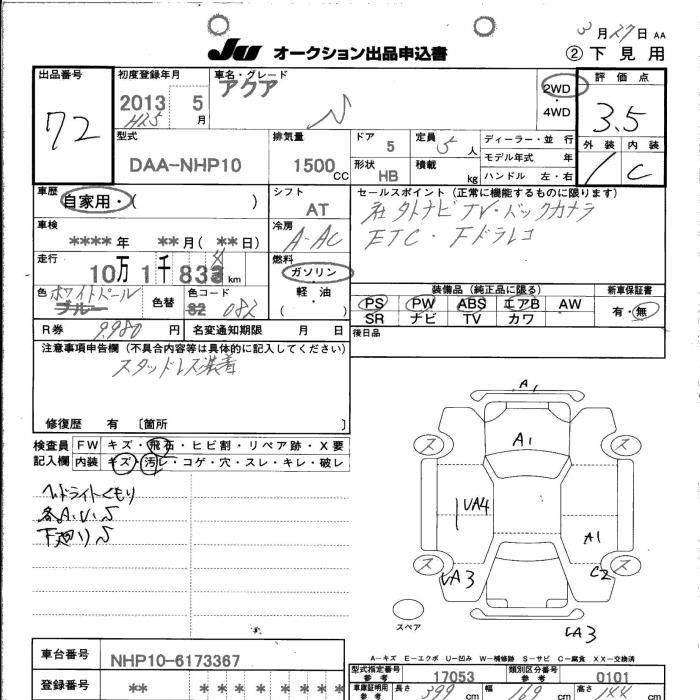 3月27日 AA
JU オークション出品申込書 ②下見用
出品番号
72
初度登録年月
2013 5
H25 月
車名・グレード
アクア
2WD
・
4WD
評価点
3.5
外装 内装
1 C
型式
DAA-NHP10
排気量
1500 CC
ドア 5
定員 5 人
形状 HB
積載 kg
ディーラー・並行
モデル年式 年
ハンドル 左・右
車歴
自家用・( )
シフト
AT
セールスポイント(正常に機能するものに限ります)
社外ナビ TV・バックカメラ
ETC・Fドラレコ
車検
**** 年 ** 月( ** 日)
冷房
A-AC
走行
10万 1千 833 km
4
燃料
ガソリン
・
軽油
( )
色 ホワイトパール
ブルー
色替
色コード
82 082
装備品(純正品に限る)
PS PW ABS エアB AW
SR ナビ TV カワ
新車保証書
有・無
R券 9,980 円
名変通知期限 月 日
後日品
注意事項申告欄(不具合内容等は具体的に記入してください)
スタッドレス装着
修復歴 有 〔箇所 〕
検査員 FW キズ・飛石・ヒビ割・リペア跡・X要
記入欄 内装 キズ・汚レ・コゲ・穴・スレ・キレ・破レ
ヘッドライトくもり
各A.U.S
下廻りS
A1
A1
ス ス
UA4
A1
ス ス
UA3
C2
スペア
UA3
A-キズ E-エクボ U-凹み W-補修跡 S-サビ C-腐食 XX-交換済
車台番号
NHP10-6173367
登録番号
** * * * * * * *
型式指定番号
参考
17053
類別区分番号
参考
0101
車庫証明用
参考
長さ 399 cm
幅 169 cm
高さ 144 cm